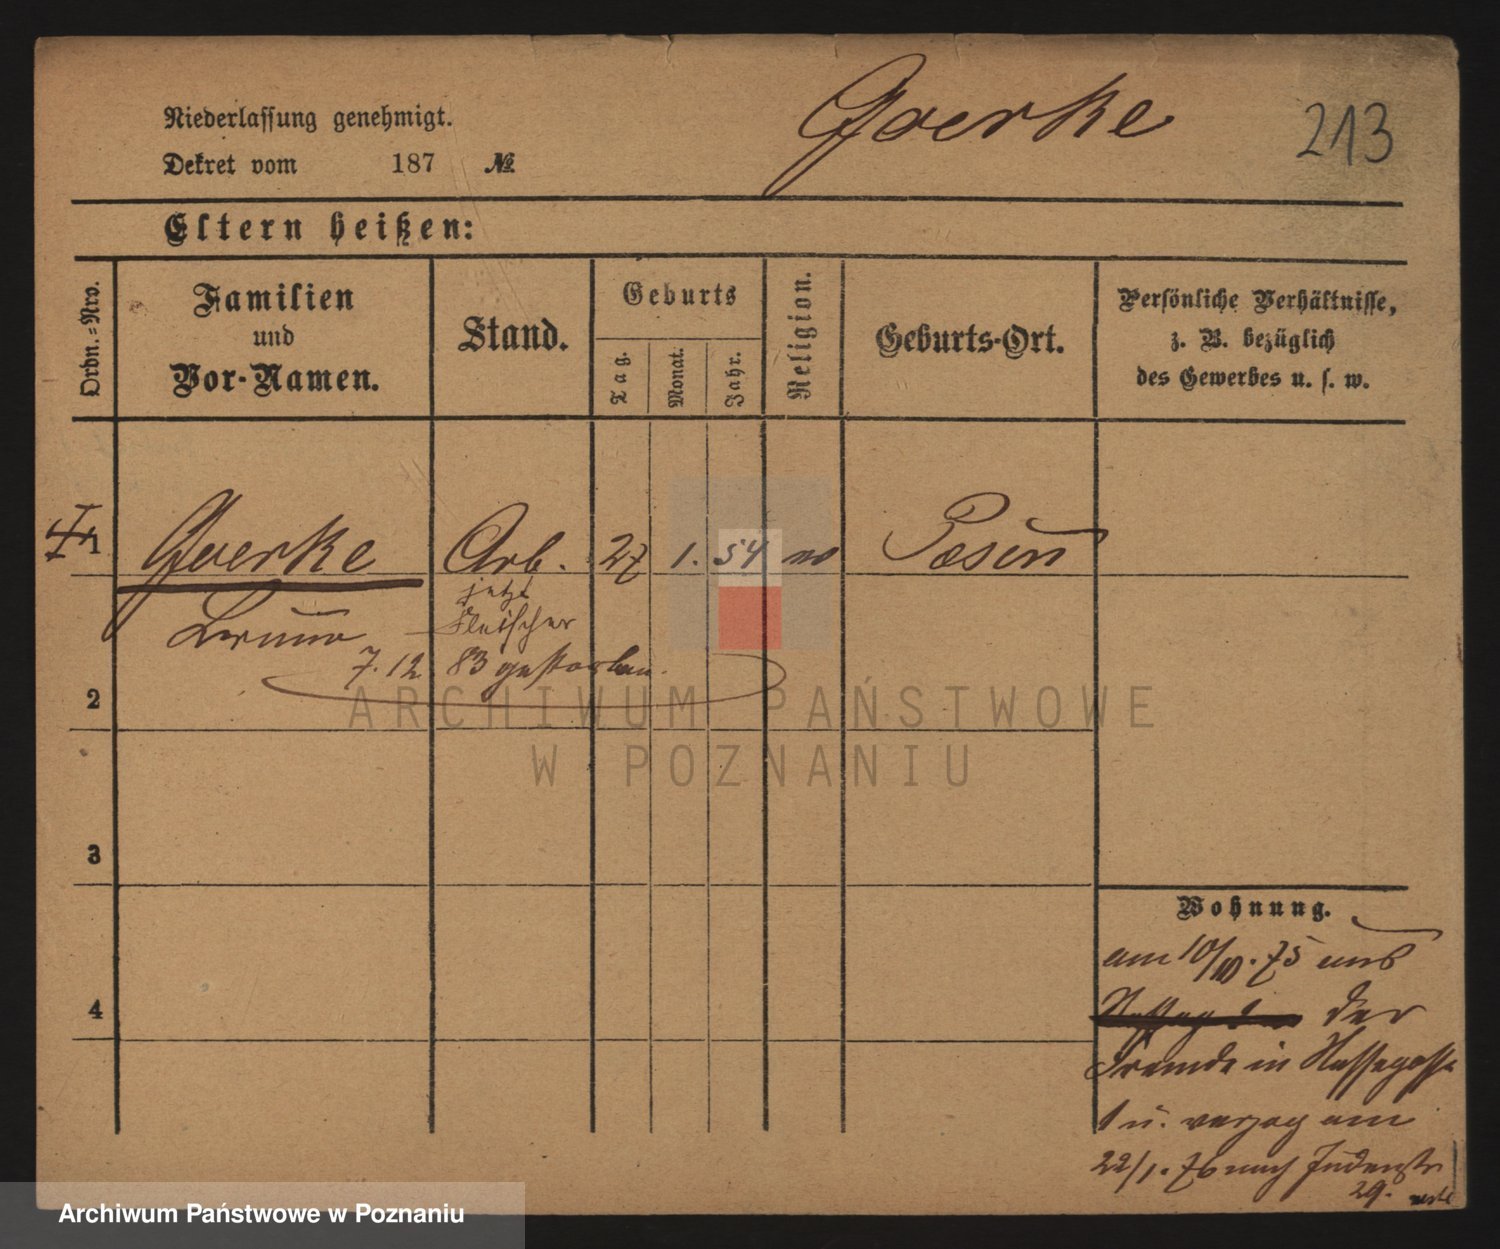 Niederlassung genehmigt.
Goerke
213
Dekret vom 187 №
Eltern heißen:
Ordn.=Nro.
Familien
und
Vor-Namen.
Stand.
Geburts
Tag.
Monat.
Jahr.
Religion.
Geburts-Ort.
Persönliche Verhältnisse,
z. B. bezüglich
des Gewerbes u. s. w.
1 Goerke Arb. 27 1. 54 Posen
jetzt
Bruno Fleischer
7.12. 83 gestorben.
2
3
4
Wohnung.
am 10/10. 75 aus
der
Fremde in Nassegasse
1 u. verzog am
22/1. 76 nach Judenstr
29.
ARCHIWUM PAŃSTWOWE
W POZNANIU
Archiwum Państwowe w Poznaniu